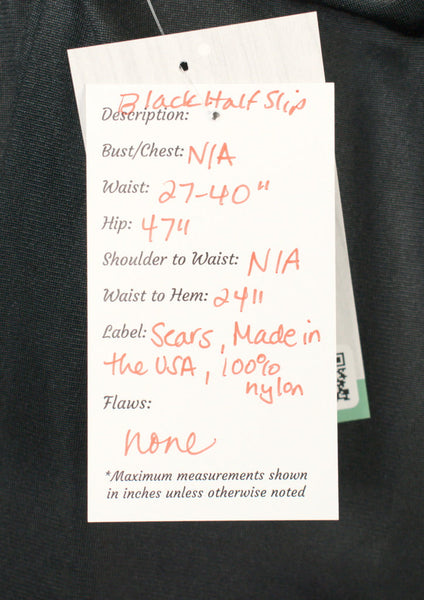 Description: Black Half Slip
Bust/Chest: N/A
Waist: 27-40"
Hip: 47"
Shoulder to Waist: N/A
Waist to Hem: 24"
Label: Sears, Made in
the USA, 100%
nylon
Flaws:
none
*Maximum measurements shown
in inches unless otherwise noted